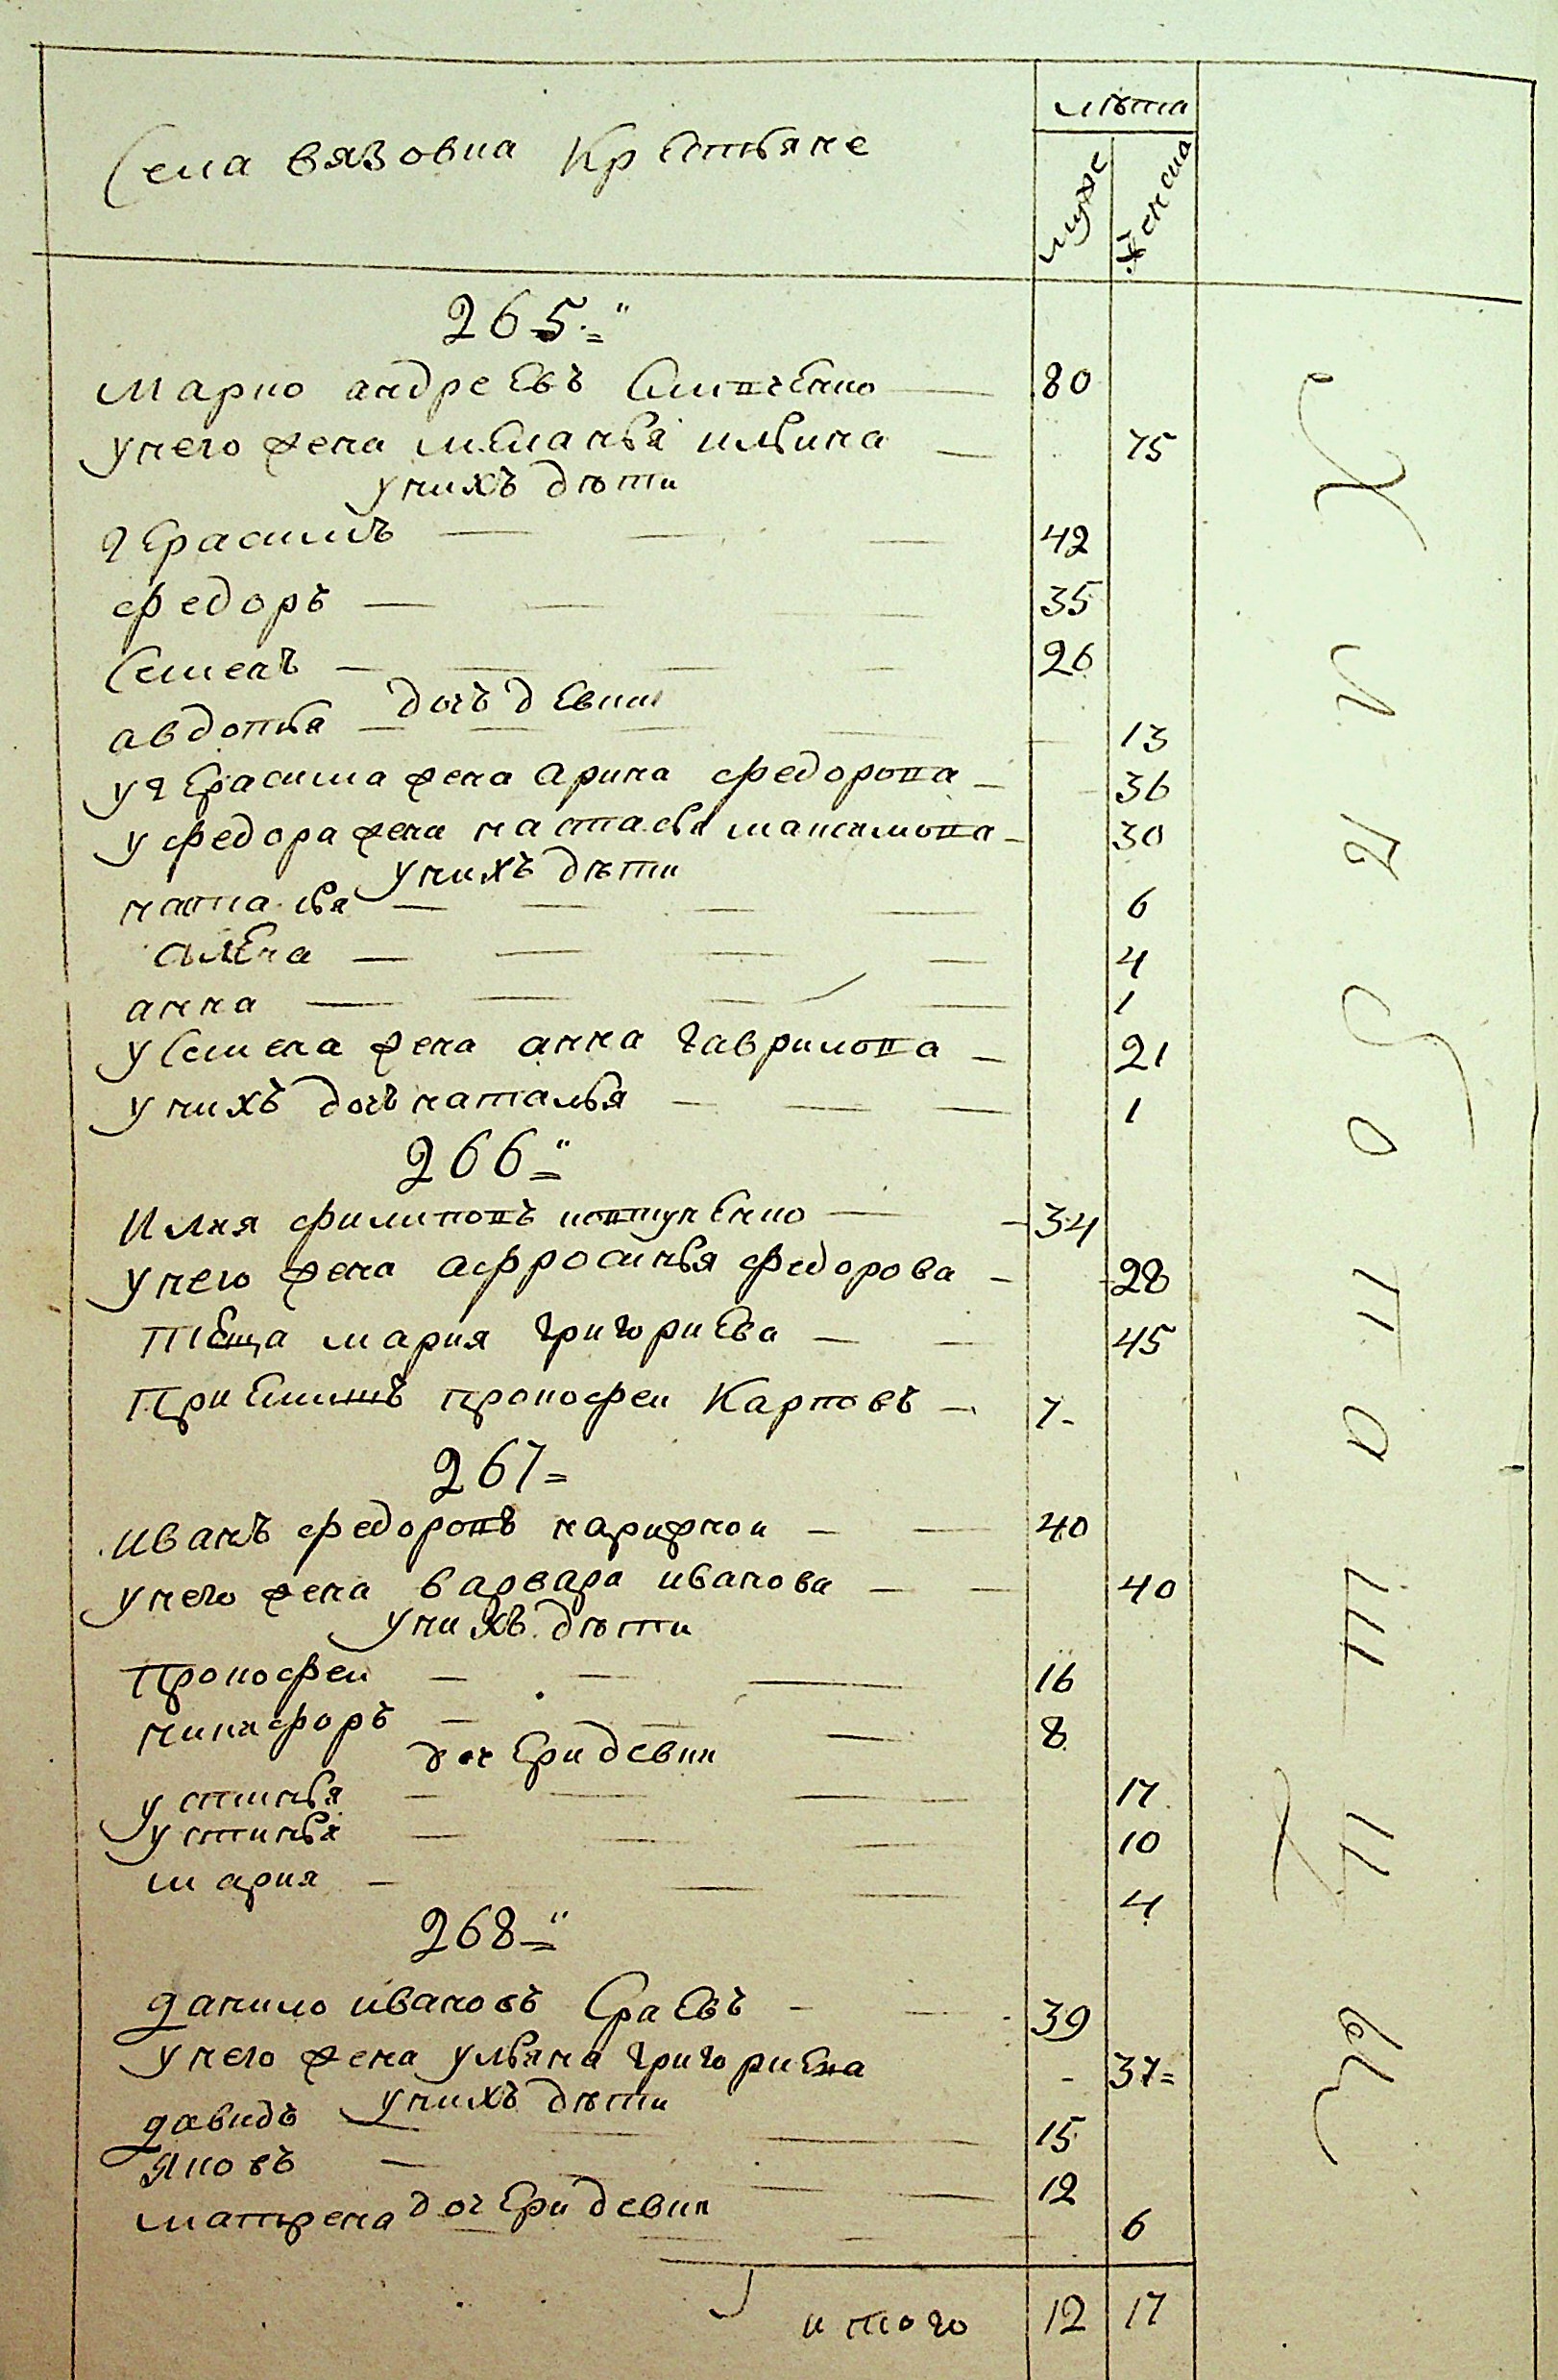 лѣта
Села вязовка Крестьяне
муже
женска
265
марко андреевъ Слипченко 80
унего жена меланья ильина 75
унихъ дѣти
герасимъ 42
федоръ 35
Семенъ 26
дочъ девки
авдотья 13
угерасима жена арина федорова 36
уфедора жена настасья максимова 30
унихъ дѣти
наталья 6
алена 4
анна 1
уСемена жена анна гаврилова 21
унихъ дочь наталья 1
266
Илья филиповъ 34
унего жена афросинья федорова 28
тіеща мария григориева 45
Приемишъ прокофеи Карповъ 7
267
иванъ федоровъ нарижнои 40
унего жена варвара иванова 40
унихъ дѣти
Прокофеи 16
никифоръ 8
дочери девки
устинья 17
устинья 10
мария 4
268
данило ивановъ Сраевъ 39
унего жена ульяна григориева 37
унихъ дѣти
давидъ 15
Яковъ 12
дочери девки
матрена 6
итого 12 17